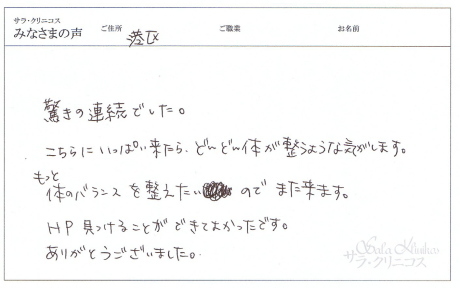 サラ・クリニコス
みなさまの声 ご住所 港区 ご職業 お名前
驚きの連続でした。
こちらにいっぱい来たら、どんどん体が整うような気がします。
もっと
体のバランスを整えたい ので また来ます。
HP見つけることができてよかったです。
ありがとうございました。
サラ・クリニコス